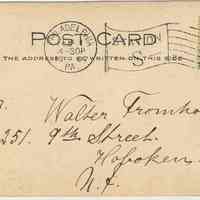 POST CARD
THE ADDRESS TO BE WRITTEN ON THIS SIDE
PHILADELPHIA
4-30P
PA
S
Walter Fromho
251. 9th Street.
Hoboken
N.J.